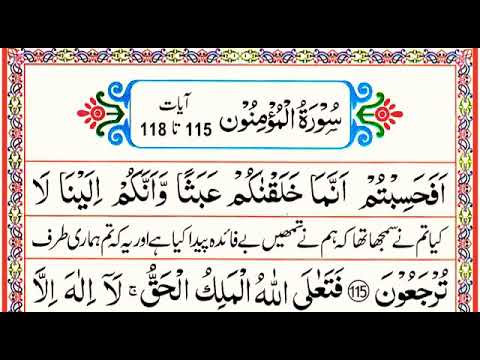 سُوْرَةُ الْمُؤْمِنُوْن
آیات
115 تا 118
اَفَحَسِبْتُمْ اَنَّمَا خَلَقْنٰكُمْ عَبَثًا وَّاَنَّكُمْ اِلَيْنَا لَا
کیا تم نے سمجھا تھا کہ ہم نے تمھیں بے فائدہ پیدا کیا ہے اور یہ کہ تم ہماری طرف
تُرْجَعُوْنَ ﴿115﴾ فَتَعٰلَى اللّٰهُ الْمَلِكُ الْحَقُّ ۚ لَاۤ اِلٰهَ اِلَّا